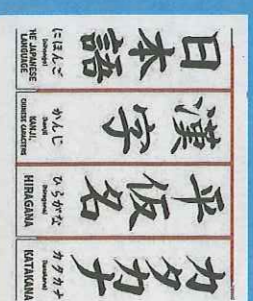 日本語
にほんご
(nihongo)
HE JAPANESE
LANGUAGE
漢字
かんじ
(kanji)
KANJI,
CHINESE CARACTERS
平仮名
ひらがな
(hiragana)
HIRAGANA
カタカナ
カタカナ
(katakana)
KATAKANA